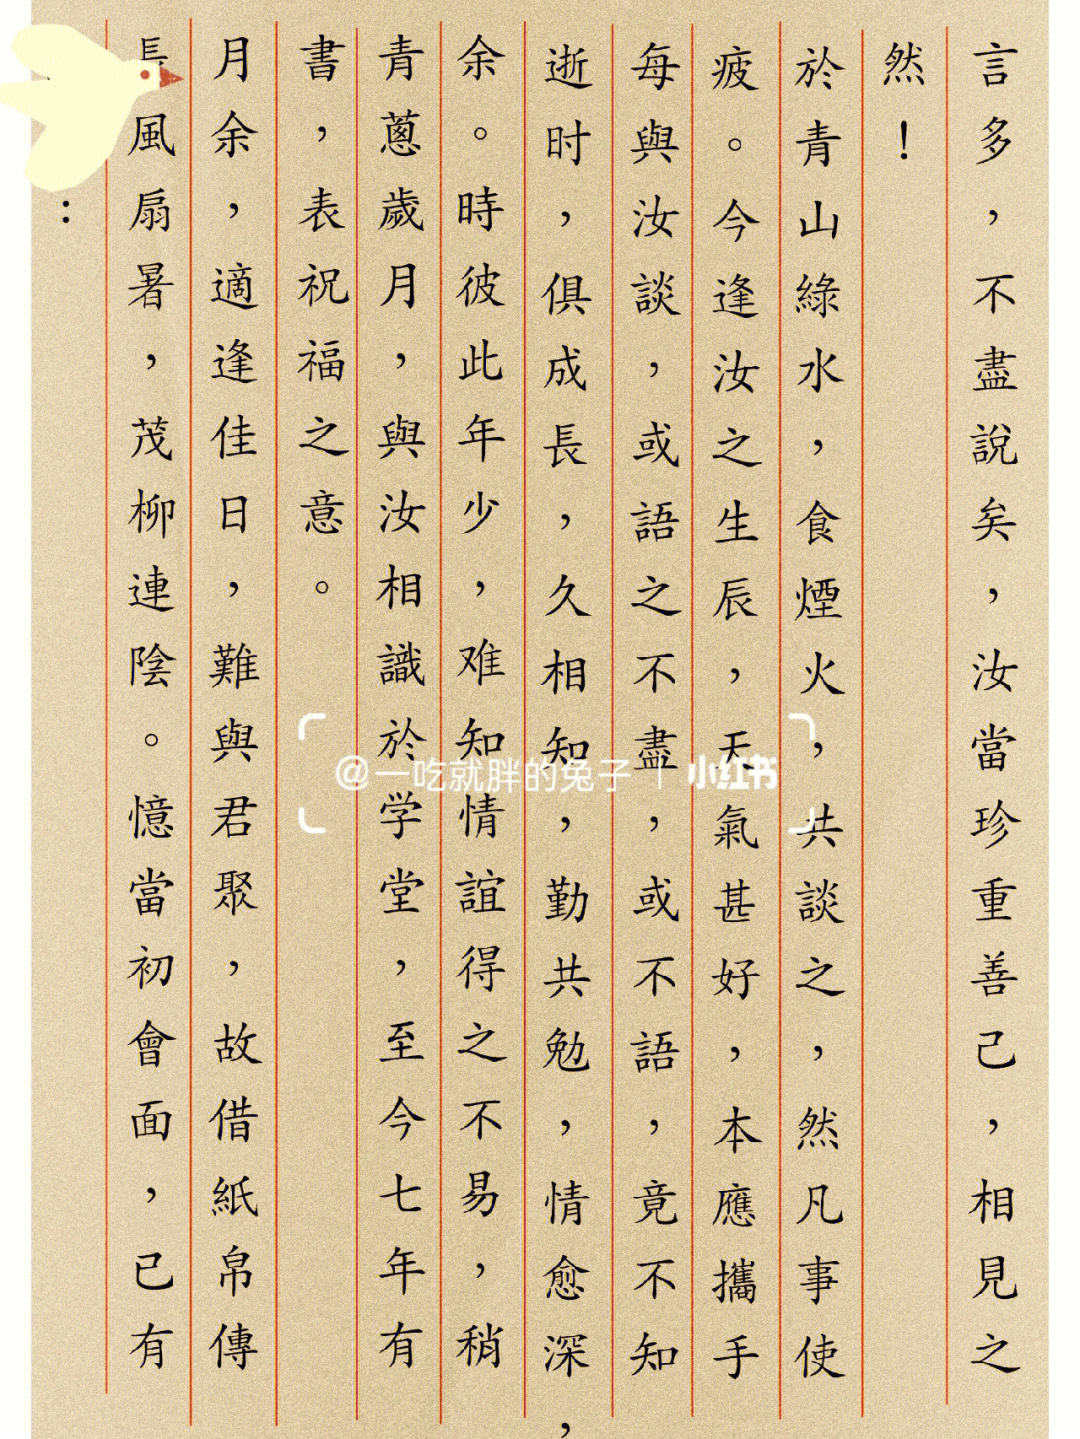 ：
長風扇暑，茂柳連陰。憶當初會面，已有
月余，適逢佳日，難與君聚，故借紙帛傳
書，表祝福之意。
青蔥歲月，與汝相識於学堂，至今七年有
余。時彼此年少，难知情誼得之不易，稍
逝时，俱成長，久相知，勤共勉，情愈深，
每與汝談，或語之不盡，或不語，竟不知
疲。今逢汝之生辰，天氣甚好，本應攜手
於青山綠水，食煙火，共談之，然凡事使
然！
言多，不盡說矣，汝當珍重善己，相見之
@一吃就胖的兔子 | 小红书